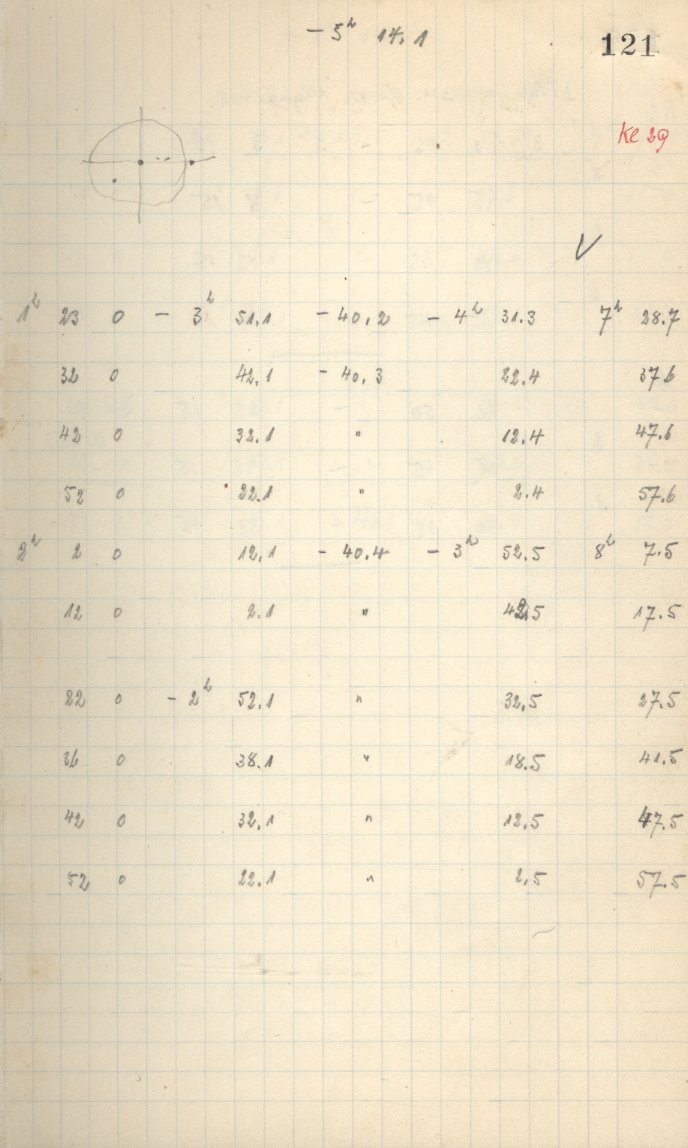 - 5ʰ 14.1
121
Ke 29
V
1ʰ 23 0 - 3ʰ 51.1 - 40.2 - 4ʰ 31.3 7ʰ 28.7
32 0 42.1 - 40.3 22.4 37.6
42 0 32.1 " 12.4 47.6
52 0 22.1 " 2.4 57.6
2ʰ 2 0 12.1 - 40.4 - 3ʰ 52.5 8ʰ 7.5
12 0 2.1 " 42.5 17.5
22 0 - 2ʰ 52.1 " 32.5 27.5
36 0 38.1 " 18.5 41.5
42 0 32.1 " 12.5 47.5
52 0 22.1 " 2.5 57.5